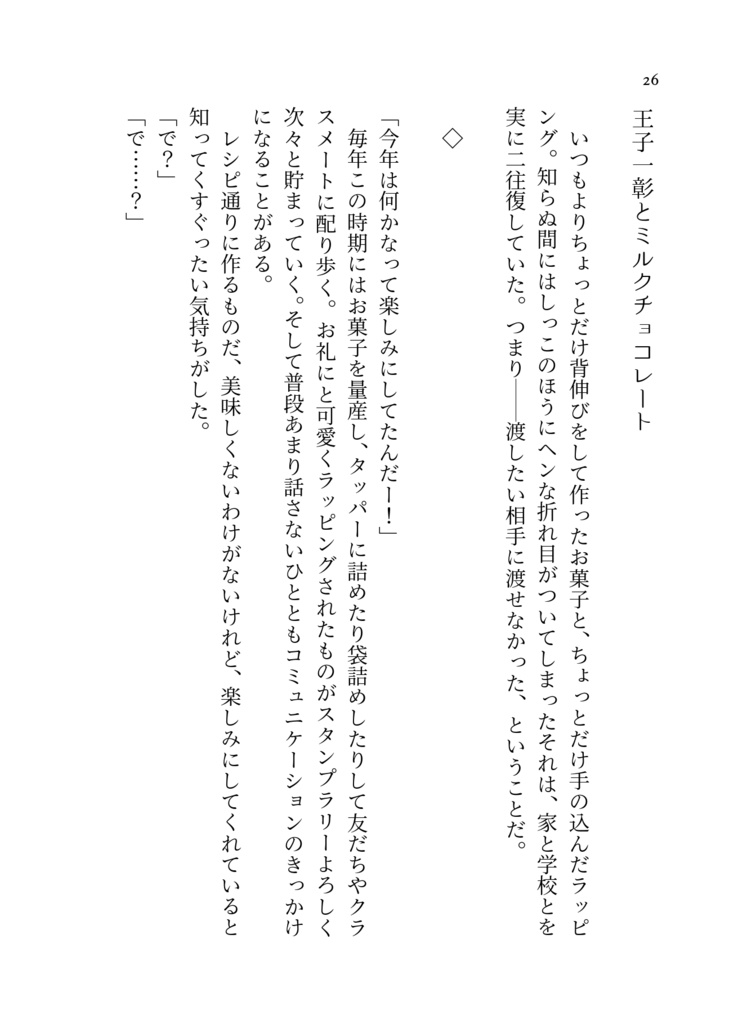 26
王子一彰とミルクチョコレート
いつもよりちょっとだけ背伸びをして作ったお菓子と、ちょっとだけ手の込んだラッピ
ング。知らぬ間にはしっこのほうにヘンな折れ目がついてしまったそれは、家と学校とを
実に二往復していた。つまり――渡したい相手に渡せなかった、ということだ。
◇
「今年は何かなって楽しみにしてたんだー！」
毎年この時期にはお菓子を量産し、タッパーに詰めたり袋詰めしたりして友だちやクラ
スメートに配り歩く。お礼にと可愛くラッピングされたものがスタンプラリーよろしく
次々と貯まっていく。そして普段あまり話さないひとともコミュニケーションのきっかけ
になることがある。
レシピ通りに作るものだ、美味しくないわけがないけれど、楽しみにしてくれていると
知ってくすぐったい気持ちがした。
「で？」
「で……？」